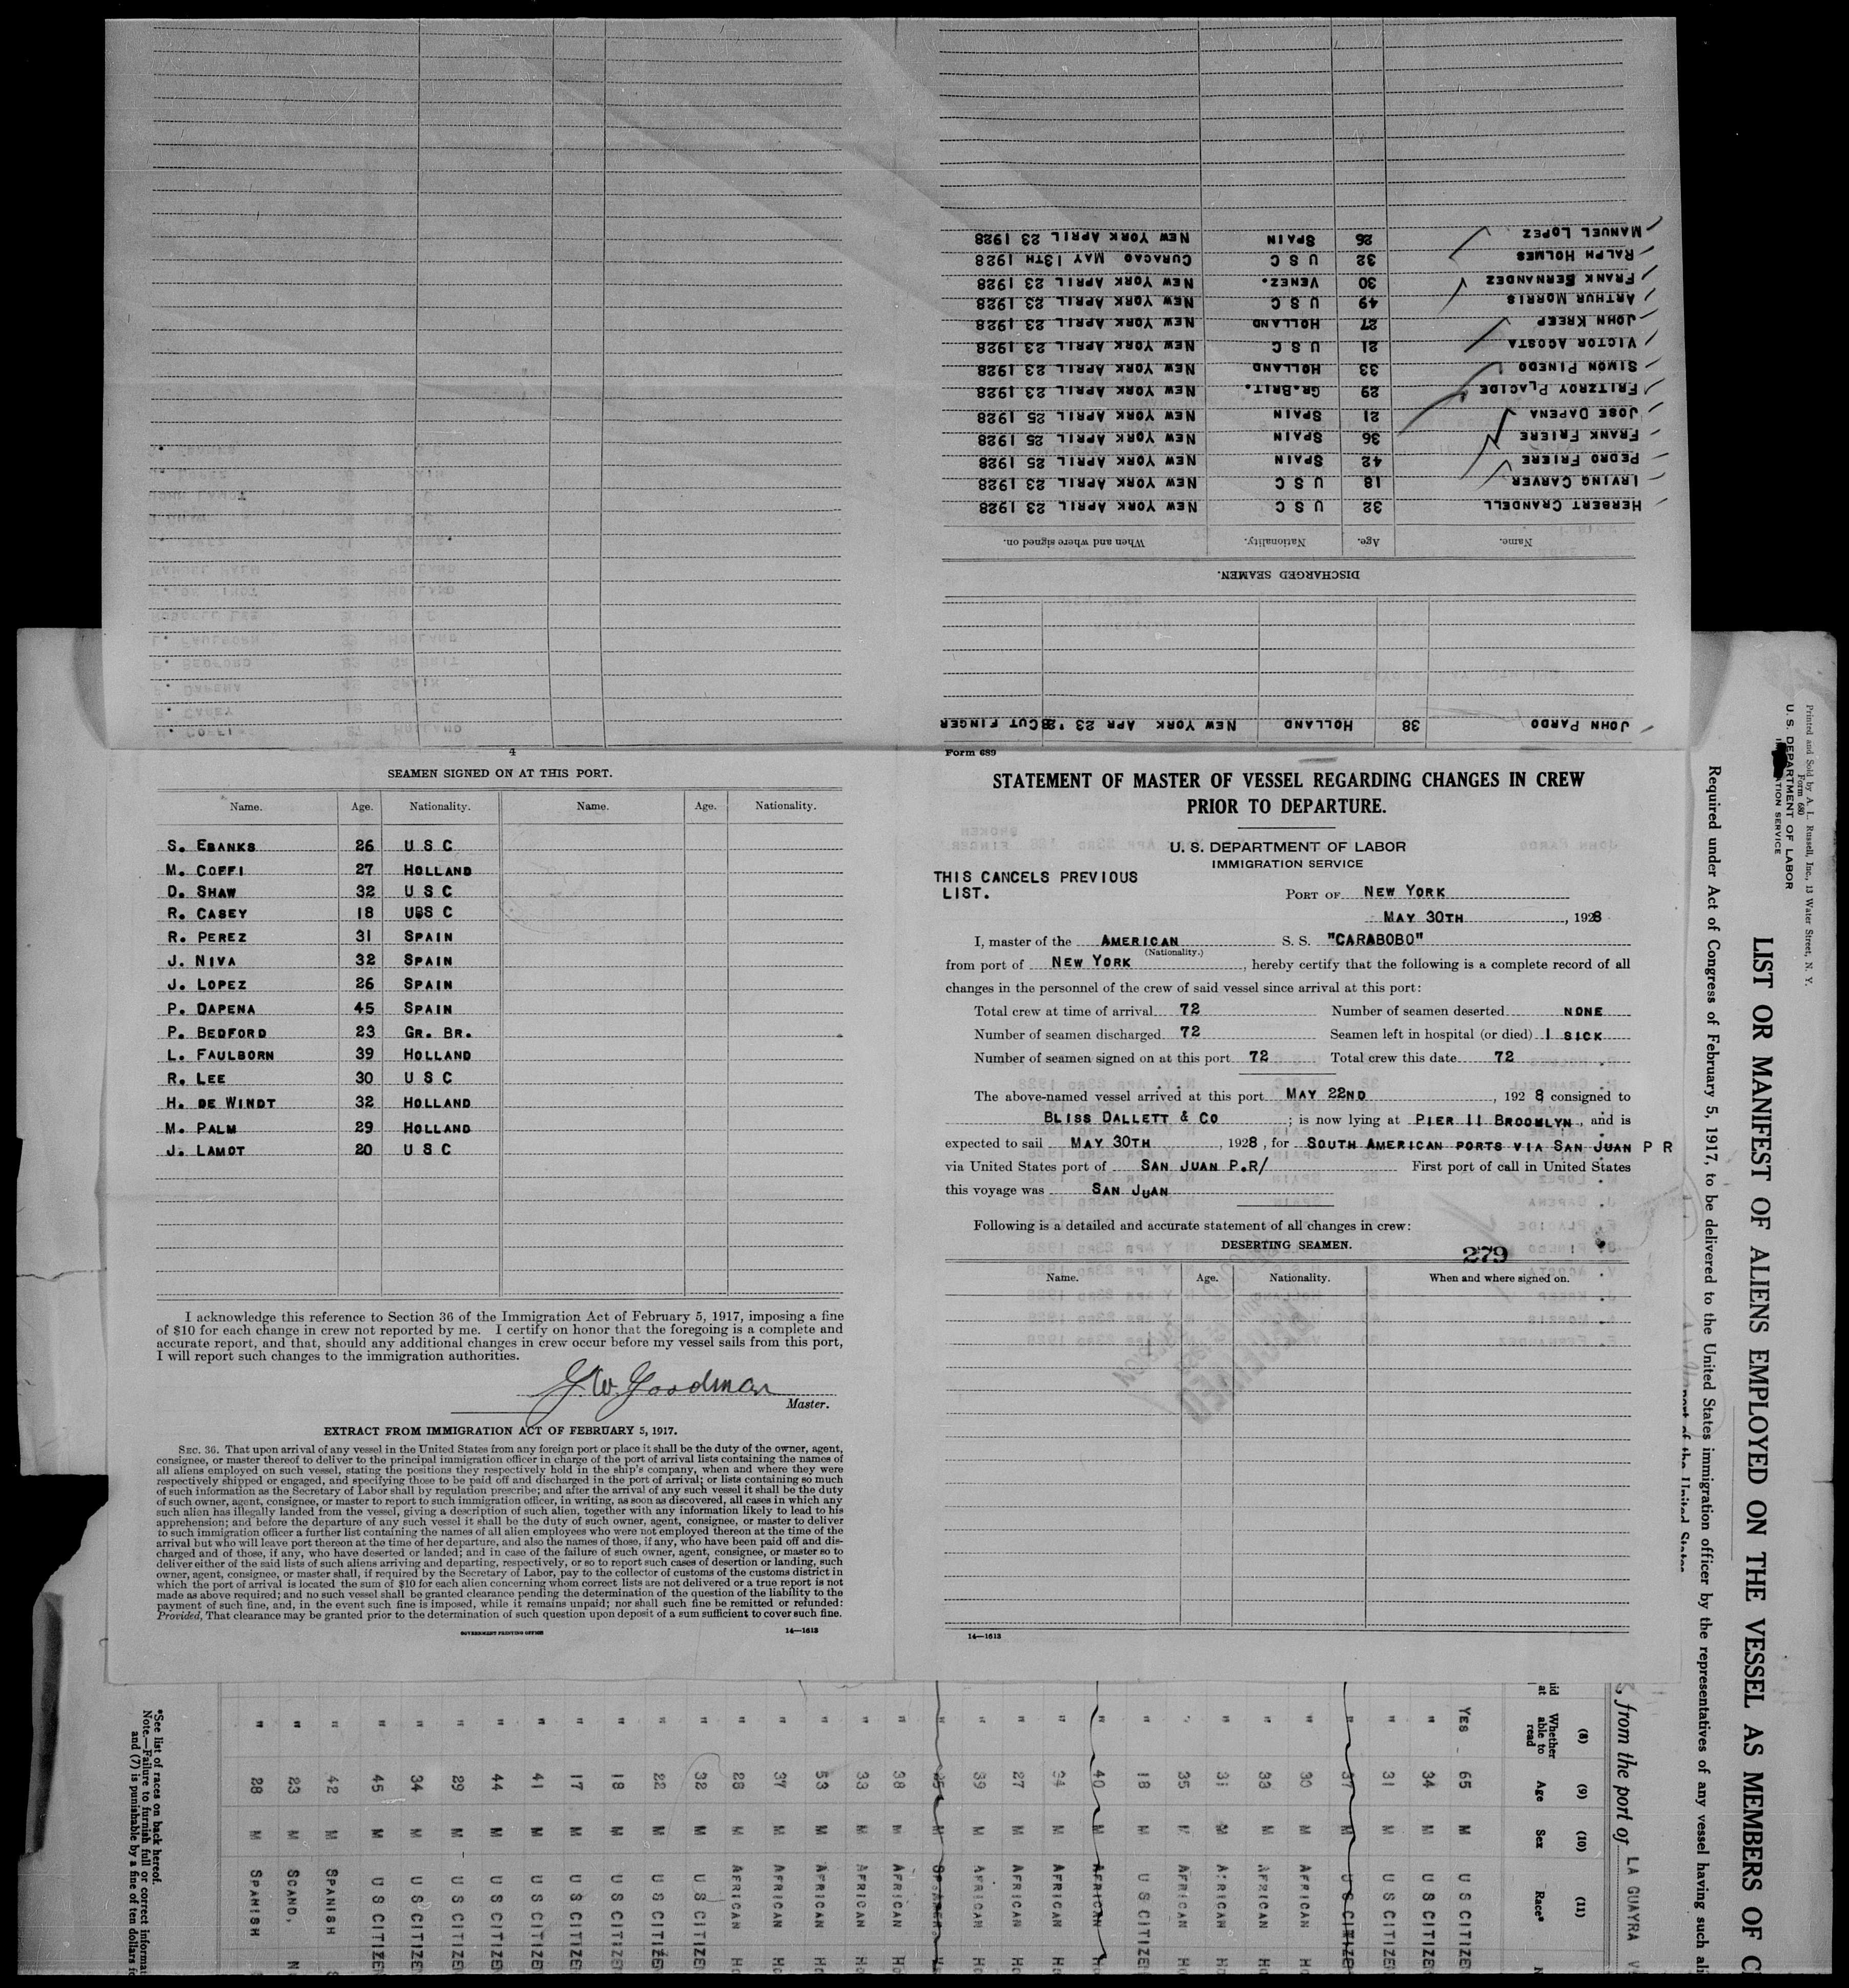 Form 689
STATEMENT OF MASTER OF VESSEL REGARDING CHANGES IN CREW
PRIOR TO DEPARTURE.
U. S. DEPARTMENT OF LABOR
IMMIGRATION SERVICE
THIS CANCELS PREVIOUS
LIST.
PORT OF NEW YORK
MAY 30TH, 1928
I, master of the AMERICAN S. S. "CARABOBO"
(Nationality.)
from port of NEW YORK, hereby certify that the following is a complete record of all
changes in the personnel of the crew of said vessel since arrival at this port:
Total crew at time of arrival 72 Number of seamen deserted NONE
Number of seamen discharged 72 Seamen left in hospital (or died) 1 SICK
Number of seamen signed on at this port 72 Total crew this date 72
The above-named vessel arrived at this port MAY 22ND, 1928 consigned to
BLISS DALLETT & CO; is now lying at PIER 11 BROOMLYN, and is
expected to sail MAY 30TH, 1928, for SOUTH AMERICAN PORTS VIA SAN JUAN P R
via United States port of SAN JUAN P.R/ First port of call in United States
this voyage was SAN JUAN
Following is a detailed and accurate statement of all changes in crew:
DESERTING SEAMEN.
279
Name. Age. Nationality. When and where signed on.
14—1613
JOHN PARDO 38 HOLLAND NEW YORK APR 23 '28 CUT FINGER
DISCHARGED SEAMEN.
Name. Age. Nationality. When and where signed on.
HERBERT CRANDELL 32 U S C NEW YORK APRIL 23 1928
IRVING CARVER 18 U S C NEW YORK APRIL 23 1928
PEDRO FRIERE 42 SPAIN NEW YORK APRIL 25 1928
FRANK FRIERE 36 SPAIN NEW YORK APRIL 25 1928
JOSE DAPENA 21 SPAIN NEW YORK APRIL 25 1928
FRITZROY PLACIDE 29 GR.BRIT. NEW YORK APRIL 23 1928
SIMON PINEDO 33 HOLLAND NEW YORK APRIL 23 1928
VICTOR ACOSTA 21 U S C NEW YORK APRIL 23 1928
JOHN KREEP 27 HOLLAND NEW YORK APRIL 23 1928
ARTHUR MORRIS 49 U S C NEW YORK APRIL 23 1928
FRANK FERNANDEZ 30 VENEZ. NEW YORK APRIL 23 1928
RALPH HOLMES 32 U S C CURACAO MAY 13TH 1928
MANUEL LOPEZ 26 SPAIN NEW YORK APRIL 23 1928
4
SEAMEN SIGNED ON AT THIS PORT.
Name. Age. Nationality. Name. Age. Nationality.
S. EBANKS 26 U S C
M. COFFI 27 HOLLAND
D. SHAW 32 U S C
R. CASEY 18 UBS C
R. PEREZ 31 SPAIN
J. NIVA 32 SPAIN
J. LOPEZ 26 SPAIN
P. DAPENA 45 SPAIN
P. BEDFORD 23 GR. BR.
L. FAULBORN 39 HOLLAND
R. LEE 30 U S C
H. DE WINDT 32 HOLLAND
M. PALM 29 HOLLAND
J. LAMOT 20 U S C
I acknowledge this reference to Section 36 of the Immigration Act of February 5, 1917, imposing a fine
of $10 for each change in crew not reported by me. I certify on honor that the foregoing is a complete and
accurate report, and that, should any additional changes in crew occur before my vessel sails from this port,
I will report such changes to the immigration authorities.
J. W. Goodman
Master.
EXTRACT FROM IMMIGRATION ACT OF FEBRUARY 5, 1917.
SEC. 36. That upon arrival of any vessel in the United States from any foreign port or place it shall be the duty of the owner, agent,
consignee, or master thereof to deliver to the principal immigration officer in charge of the port of arrival lists containing the names of
all aliens employed on such vessel, stating the positions they respectively hold in the ship's company, when and where they were
respectively shipped or engaged, and specifying those to be paid off and discharged in the port of arrival; or lists containing so much
of such information as the Secretary of Labor shall by regulation prescribe; and after the arrival of any such vessel it shall be the duty
of such owner, agent, consignee, or master to report to such immigration officer, in writing, as soon as discovered, all cases in which any
such alien has illegally landed from the vessel, giving a description of such alien, together with any information likely to lead to his
apprehension; and before the departure of any such vessel it shall be the duty of such owner, agent, consignee, or master to deliver
to such immigration officer a further list containing the names of all alien employees who were not employed thereon at the time of the
arrival but who will leave port thereon at the time of her departure, and also the names of those, if any, who have been paid off and dis-
charged and of those, if any, who have deserted or landed; and in case of the failure of such owner, agent, consignee, or master so to
deliver either of the said lists of such aliens arriving and departing, respectively, or so to report such cases of desertion or landing, such
owner, agent, consignee, or master shall, if required by the Secretary of Labor, pay to the collector of customs of the customs district in
which the port of arrival is located the sum of $10 for each alien concerning whom correct lists are not delivered or a true report is not
made as above required; and no such vessel shall be granted clearance pending the determination of the question of the liability to the
payment of such fine, and, in the event such fine is imposed, while it remains unpaid; nor shall such fine be remitted or refunded:
Provided, That clearance may be granted prior to the determination of such question upon deposit of a sum sufficient to cover such fine.
GOVERNMENT PRINTING OFFICE 14—1613
Printed and Sold by A. L. Russell, Inc., 13 Water Street, N. Y.
Form 680
U. S. DEPARTMENT OF LABOR
LIST OR MANIFEST OF ALIENS EMPLOYED ON THE VESSEL AS MEMBERS OF
Required under Act of Congress of February 5, 1917, to be delivered to the United States immigration officer by the representatives of any vessel having such
from the port of LA GUAYRA
(8) (9) (10) (11)
Whether able to read Age Sex Race*
YES 65 M U S CITIZE
" 34 M U S CITIZE
" 31 M U S CITIZE
" 37 M U S CITIZE
" 30 M AFRICAN
" 33 M AFRICAN
" 31 M AFRICAN
" 35 M AFRICAN
" 18 M U S CITIZE
" 40 M AFRICAN
" M AFRICAN
" 27 M AFRICAN
" 39 M AFRICAN
" M
" 38 M AFRICAN
" 33 M AFRICAN
" 53 M AFRICAN
" 37 M AFRICAN
" 28 M AFRICAN
" 32 M U S CITIZE
" 22 M U S CITIZE
" 18 M U S CITIZE
" 17 M U S CITIZE
" 41 M U S CITIZE
" 44 M U S CITIZE
" 29 M U S CITIZE
" 34 M U S CITIZE
" 45 M U S CITIZE
" 42 M SPANISH
" 23 M SCAND,
" 28 M SPANISH
*See list of races on back hereof.
Note.—Failure to furnish full or correct informat
and (7) is punishable by a fine of ten dollars f